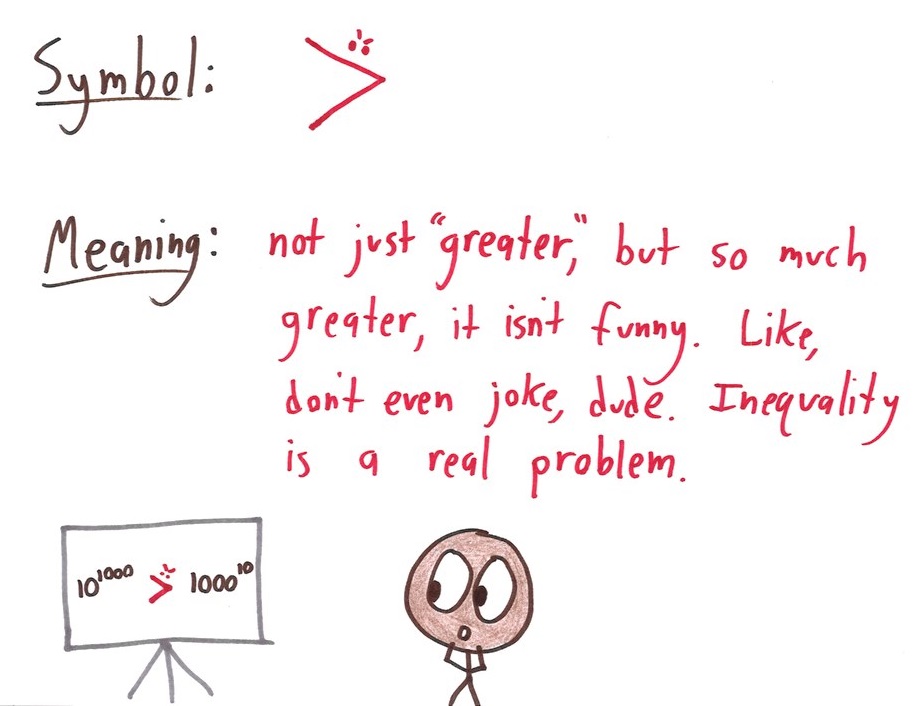 Symbol: >
Meaning: not just "greater," but so much
greater, it isn't funny. Like,
don't even joke, dude. Inequality
is a real problem.
10¹⁰⁰⁰ > 1000¹⁰